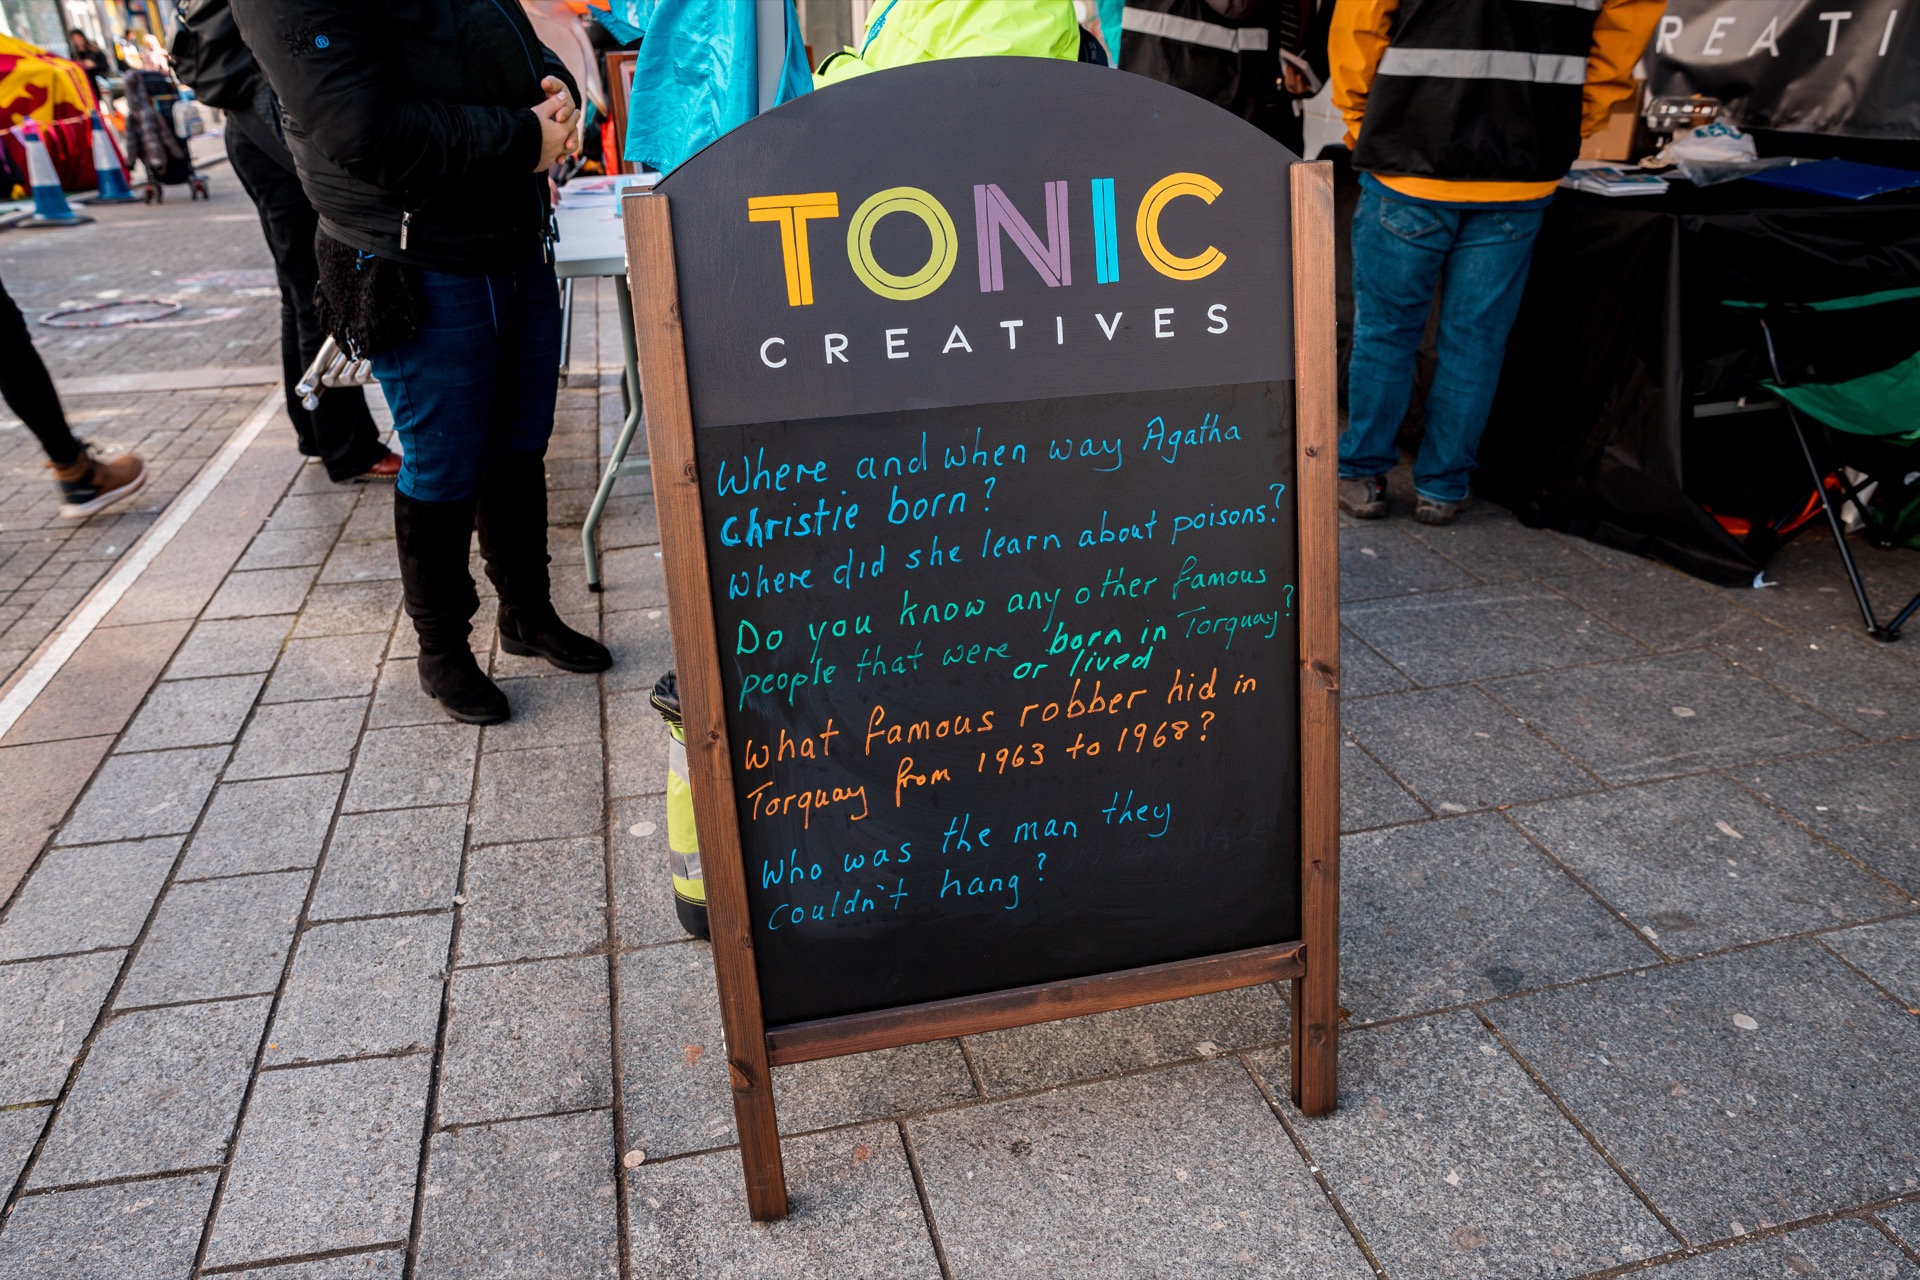 SUPER
DRY®
REATI
TONIC
CREATIVES
Where and when way Agatha
Christie born?
Where did she learn about poisons?
Do you know any other famous
people that were born in Torquay?
or lived
What famous robber hid in
Torquay from 1963 to 1968?
Who was the man they
couldn't hang?